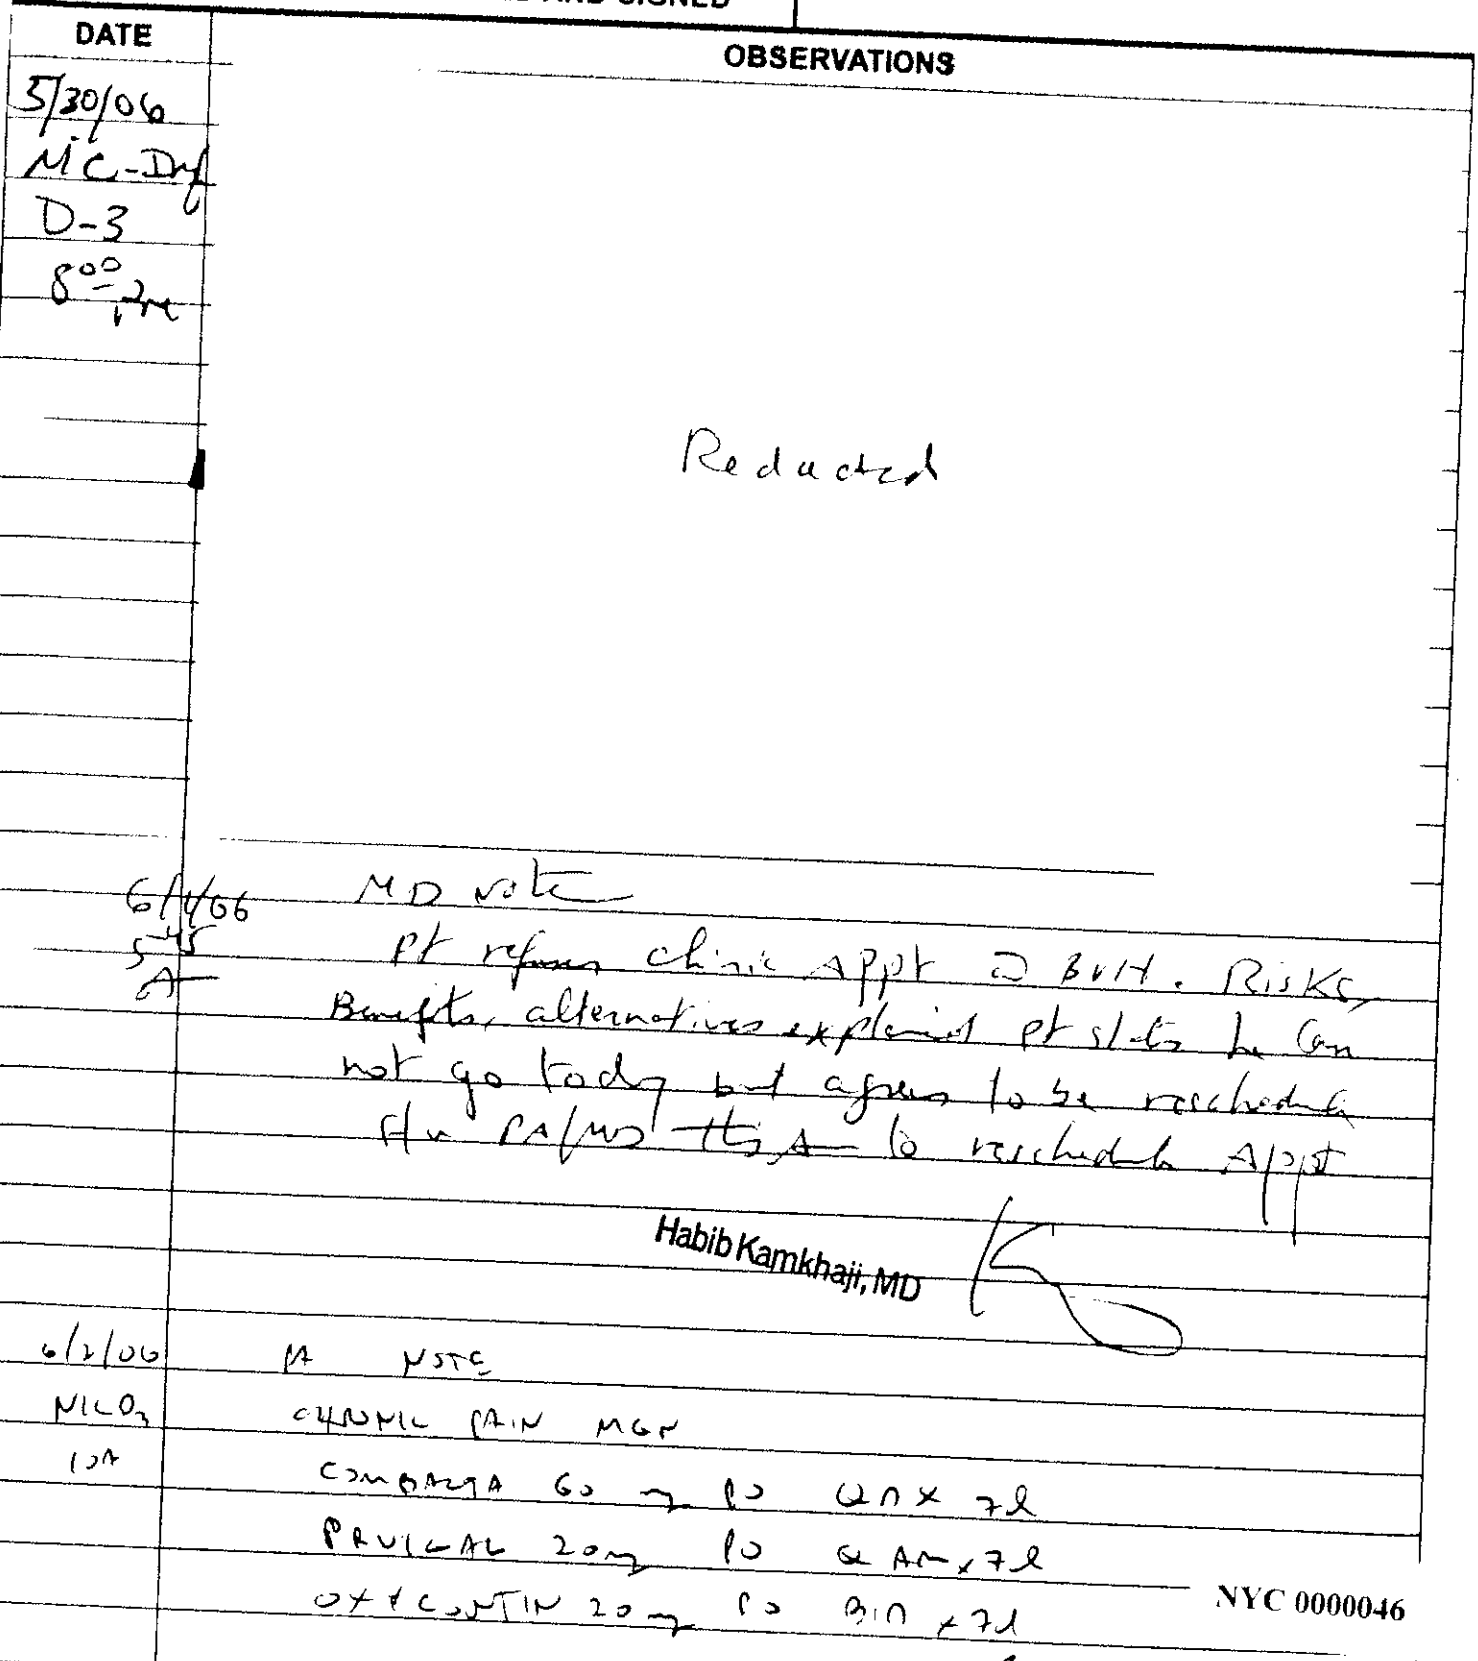 AND SIGNED
DATE
OBSERVATIONS
5/30/06
D-3
8ºº
Redacted
6/1/06 MD Note
5:45 Pt refuses clinic Appt @ BVH. Risks,
A Benefits, alternatives explained pt states he can
not go today but agrees to be reschedule
PA/MD this A to reschedule Appt
Habib Kamkhaji, MD
6/2/06 PA NOTE
CHRONIC PAIN MGN
10A
60 mg PO QD x 7d
20mg PO Q AM x 7d
OXYCONTIN 20mg PO BID x 7d
NYC 0000046